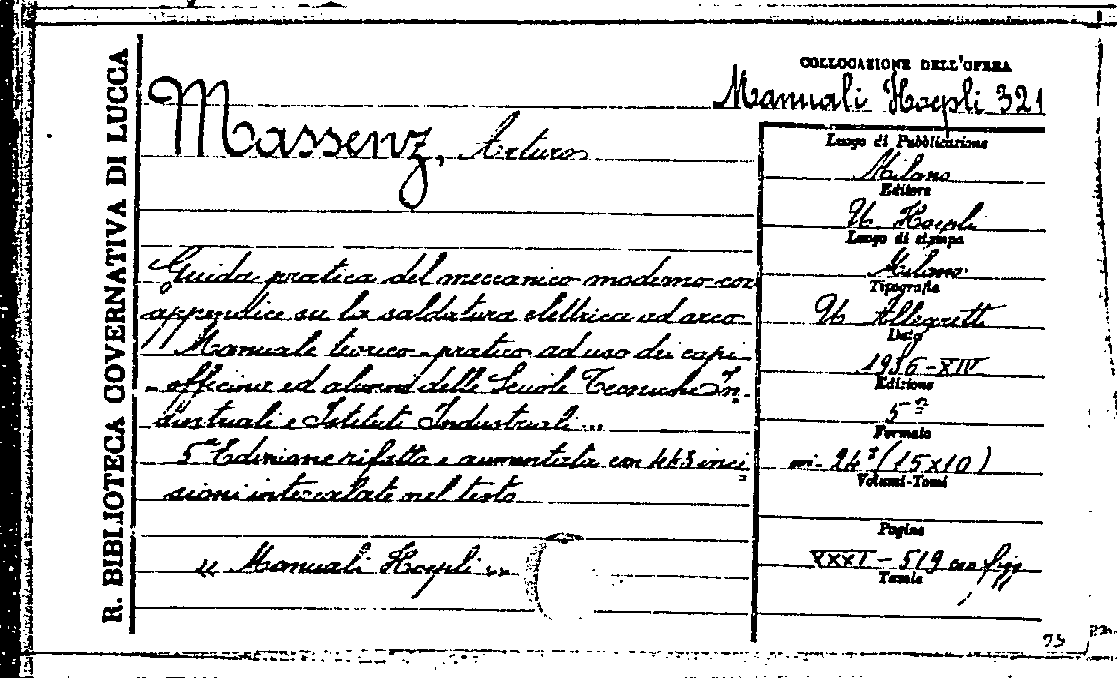 R. BIBLIOTECA GOVERNATIVA DI LUCCA
COLLOCAZIONE DELL'OPERA
Manuali Hoepli 321
Massenz, Arturo
Guida pratica del meccanico moderno con
appendice su la saldatura elettrica ad arco
Manuale teorico-pratico ad uso dei capi
-officine ed alunni delle Scuole Tecniche In-
dustriali e Istituti Industriali ...
5ª Edizione rifatta e aumentata con 443 inci
sioni intercalate nel testo
"Manuali Hoepli"
Luogo di Pubblicazione
Milano
Editore
U. Hoepli
Luogo di stampa
Milano
Tipografia
U. Allegretti
Data
1936-XIV
Edizione
5ª
Formato
in-24° (15x10)
Volumi-Tomi
Pagine
XXXI-519 con figg
Tavole